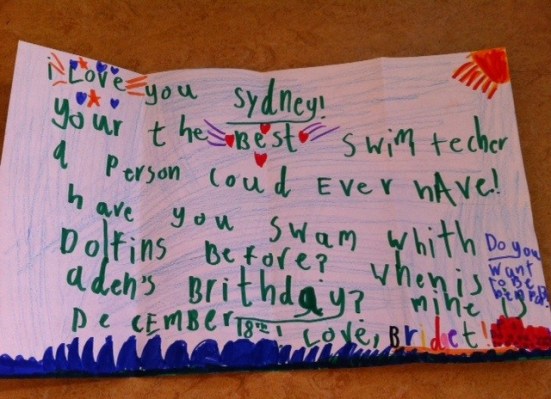 i Love you Sydney!
your the Best swim techer
a Person could Ever hAve!
have you swam whith
Dolfins Before? when is
adeh's Brithday? mine is
DeCEMBER 18th! Love, Bridget!
Do you
want
to Be